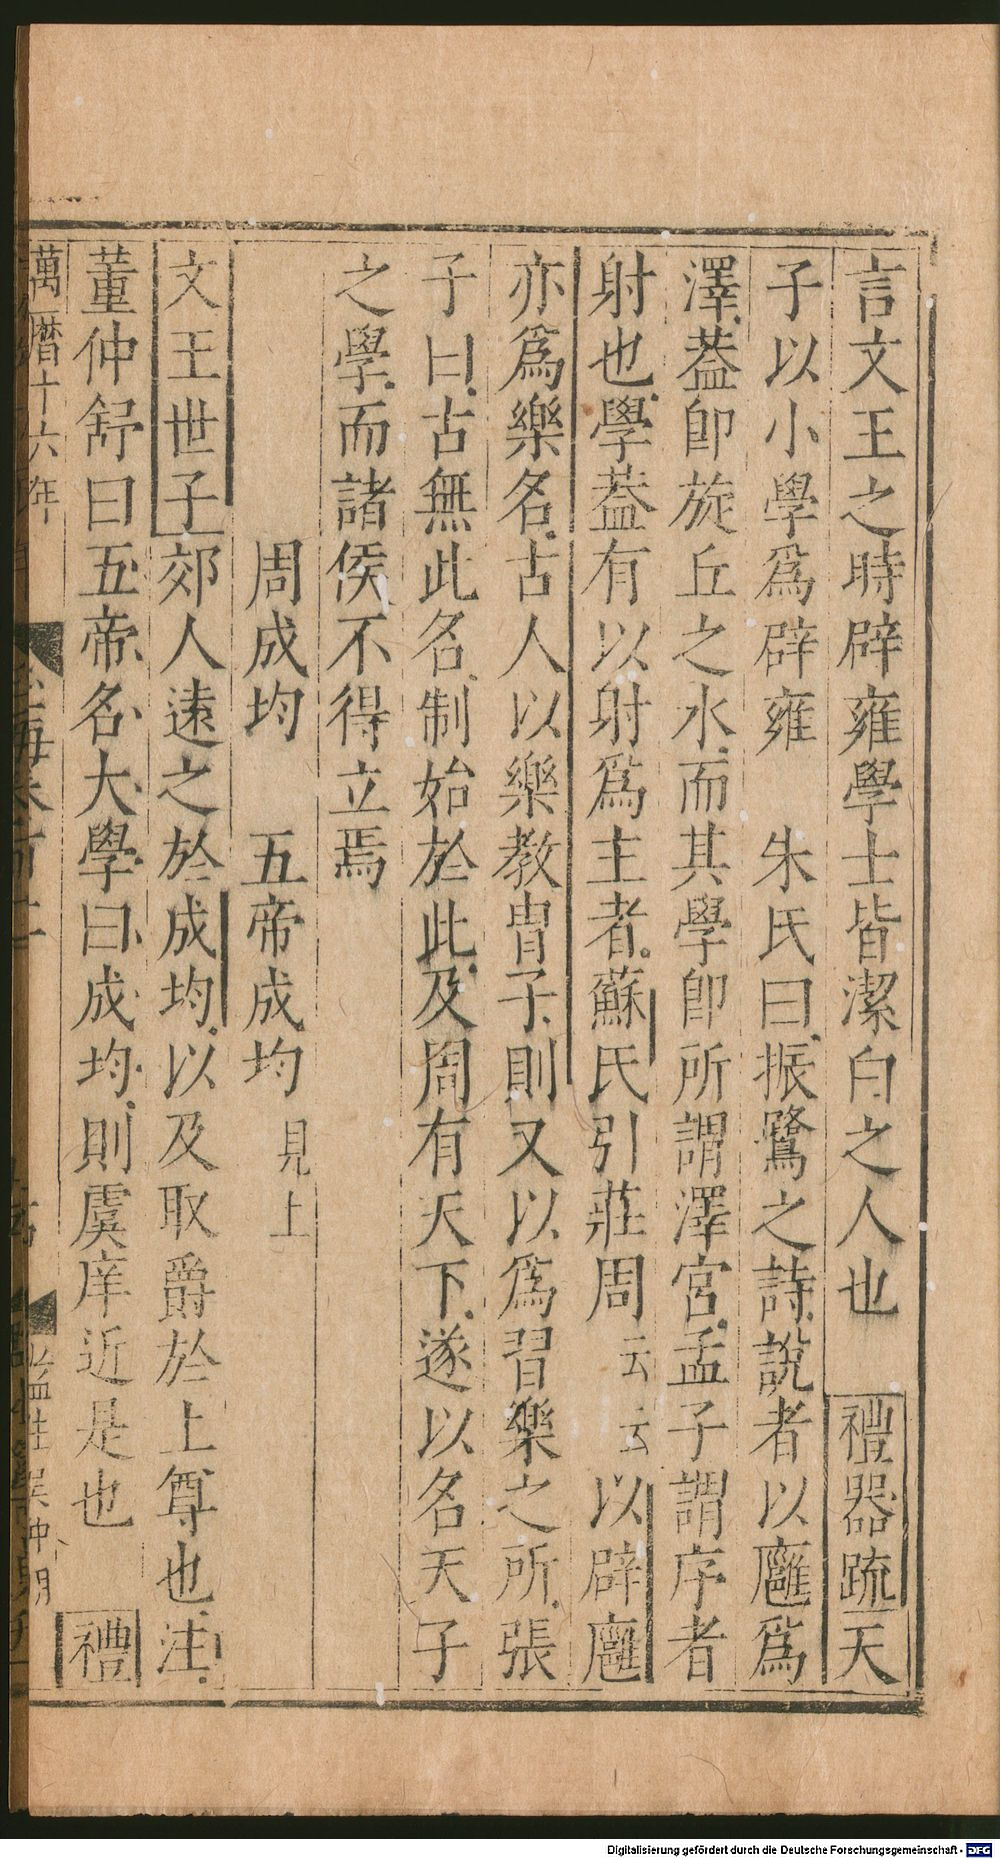 言文王之時辟雍學士皆潔白之人也 禮器疏天
子以小學爲辟雍 朱氏曰振鷺之詩說者以廱爲
澤葢卽旋丘之水而其學卽所謂澤宮孟子謂序者
射也學葢有以射爲主者蘇氏引莊周云云以辟廱
亦爲樂名古人以樂教胄子則又以爲習樂之所張
子曰古無此名制始於此及周有天下遂以名天子
之學而諸侯不得立焉
周成均 五帝成均見上
文王世子郊人遠之於成均以及取爵於上尊也注
董仲舒曰五帝名大學曰成均則虞庠近是也 禮
萬曆十六年
海 監生吳仲明
Digitalisierung gefördert durch die Deutsche Forschungsgemeinschaft - DFG